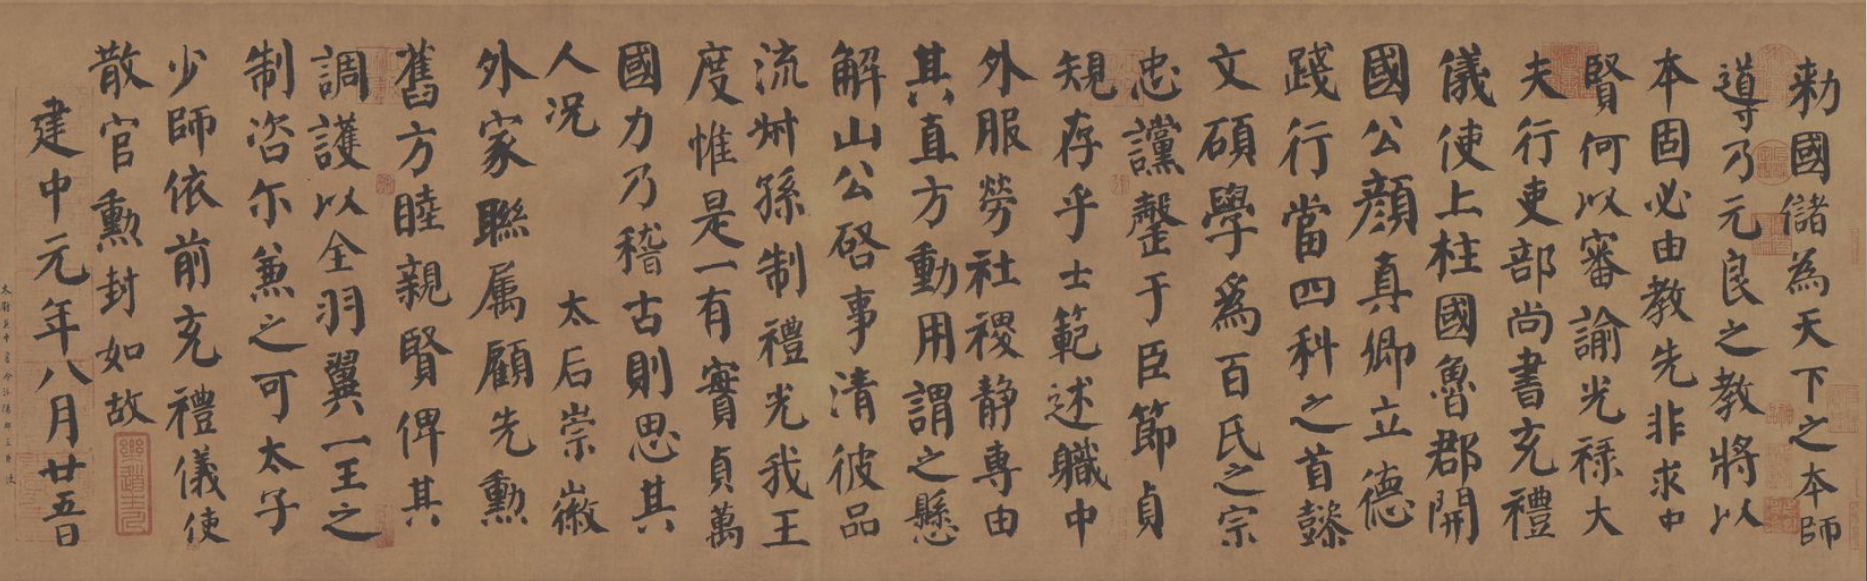 勑國儲為天下之本師
導乃元良之教將以
本固必由教先非求中
賢何以審諭光祿大
夫行吏部尚書充禮
儀使上柱國魯郡開
國公顏真卿立德
踐行當四科之首懿
文碩學為百氏之宗
忠讜罄于臣節貞
規存乎士範述職中
外服勞社稷靜專由
其直方動用謂之懸
解山公啓事清彼品
流叔孫制禮光我王
度惟是一有實貞萬
國力乃稽古則思其
人況 太后崇徽
外家聯属顧先勳
舊方睦親賢俾其
調護以全羽翼一王之
制咨尔兼之可太子
少師依前充禮儀使
散官勳封如故
建中元年八月廿五日